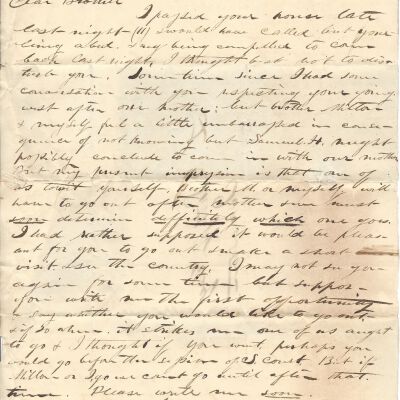 Dear Brother
I passed your house late
last night (11) & would have called but your
being abed. & my being compelled to come
back last night, I thought best not to dis
turb you. Sometime since I had some
conversation with you respecting your going
west after our mother; but brother Milton
& myself feel a little embarrassed in conse
quence of not knowing but Samuel H. might
possibly conclude to come in with our mother
But my present impression is that one of
us to wit yourself, Brother M. or myself will
have to go out after mother & we must
soon determine definitely which one goes.
I had rather supposed it would be pleas
ant for you to go out & make a short
visit & see the country. I may not see you
again for some time but suppose
you write me the first opportunity
& say whether you would like to go out
& if so when. It strikes me one of us ought
to go & I think if you went, perhaps you
would go before the session of S Court. But if
Milton or I go we cant go until after that
time. Please write me soon.